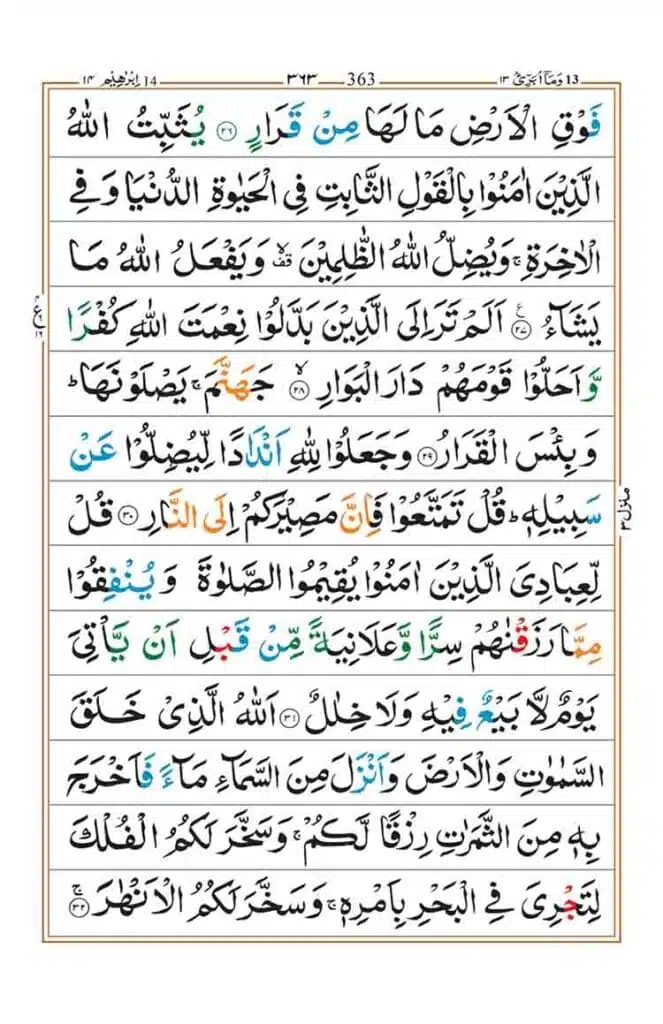 وَمَاۤ اُبَرِّئُ ١٣ 13 363 ٣٦٣ 14 اِبْرٰهِيْم ١٤
فَوْقِ الْاَرْضِ مَا لَهَا مِنْ قَرَارٍ ۝٢٦ يُثَبِّتُ اللّٰهُ
الَّذِيْنَ اٰمَنُوْا بِالْقَوْلِ الثَّابِتِ فِى الْحَيٰوةِ الدُّنْيَا وَفِى
الْاٰخِرَةِ ۚ وَيُضِلُّ اللّٰهُ الظّٰلِمِيْنَ ۙ قف وَيَفْعَلُ اللّٰهُ مَا
يَشَآءُ ۝٢٧ ع اَلَمْ تَرَ اِلَى الَّذِيْنَ بَدَّلُوْا نِعْمَتَ اللّٰهِ كُفْرًا
وَّاَحَلُّوْا قَوْمَهُمْ دَارَ الْبَوَارِ ۙ‏ ۝٢٨ جَهَنَّمَ ۚ يَصْلَوْنَهَا ؕ
وَبِئْسَ الْقَرَارُ ۝٢٩ وَجَعَلُوْا لِلّٰهِ اَنْدَادًا لِّيُضِلُّوْا عَنْ
سَبِيْلِهٖ ؕ قُلْ تَمَتَّعُوْا فَاِنَّ مَصِيْرَكُمْ اِلَى النَّارِ ۝٣٠ قُلْ
لِّعِبَادِىَ الَّذِيْنَ اٰمَنُوْا يُقِيْمُوا الصَّلٰوةَ وَيُنْفِقُوْا
مِمَّا رَزَقْنٰهُمْ سِرًّا وَّعَلَانِيَةً مِّنْ قَبْلِ اَنْ يَّاْتِىَ
يَوْمٌ لَّا بَيْعٌ فِيْهِ وَلَا خِلٰلٌ ۝٣١ اَللّٰهُ الَّذِىْ خَلَقَ
السَّمٰوٰتِ وَالْاَرْضَ وَاَنْزَلَ مِنَ السَّمَآءِ مَآءً فَاَخْرَجَ
بِهٖ مِنَ الثَّمَرٰتِ رِزْقًا لَّكُمْ ۚ وَسَخَّرَ لَكُمُ الْفُلْكَ
لِتَجْرِىَ فِى الْبَحْرِ بِاَمْرِهٖ ۚ وَسَخَّرَ لَكُمُ الْاَنْهٰرَ ۚ ۝٣٢
منزل ٣